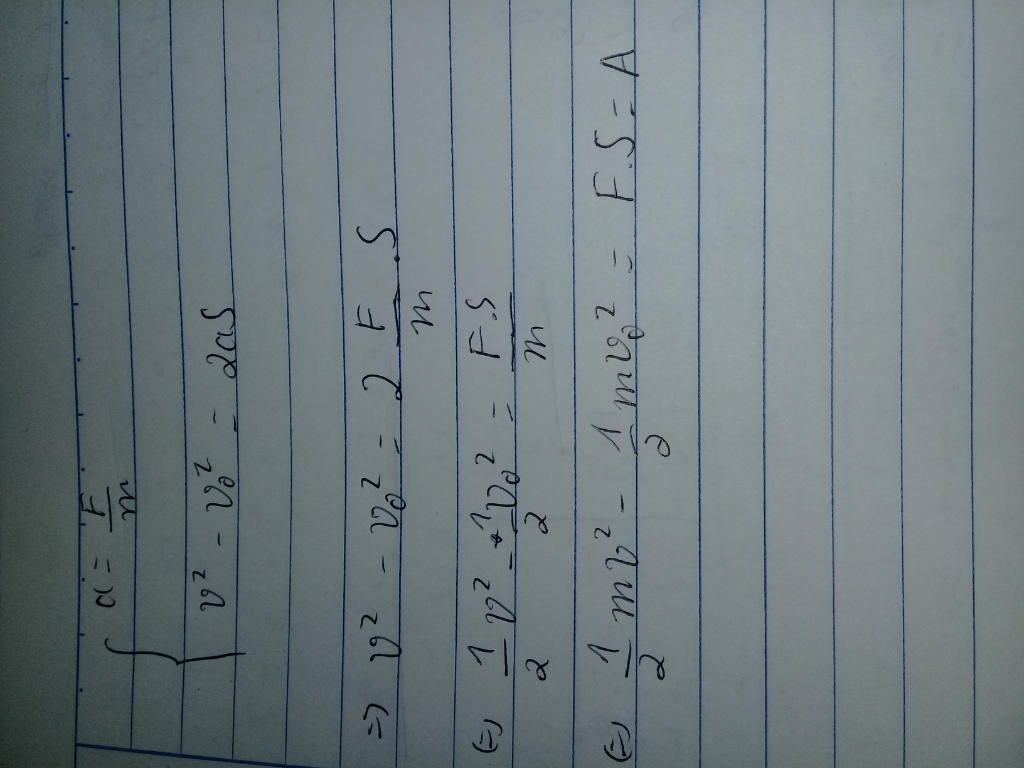 a = F/m
v² - v₀² = 2aS
=> v² - v₀² = 2 F/m .S
(=) 1/2 v² - 1/2 v₀² = F.S/m
(=) 1/2 mv² - 1/2 mv₀² = F.S = A